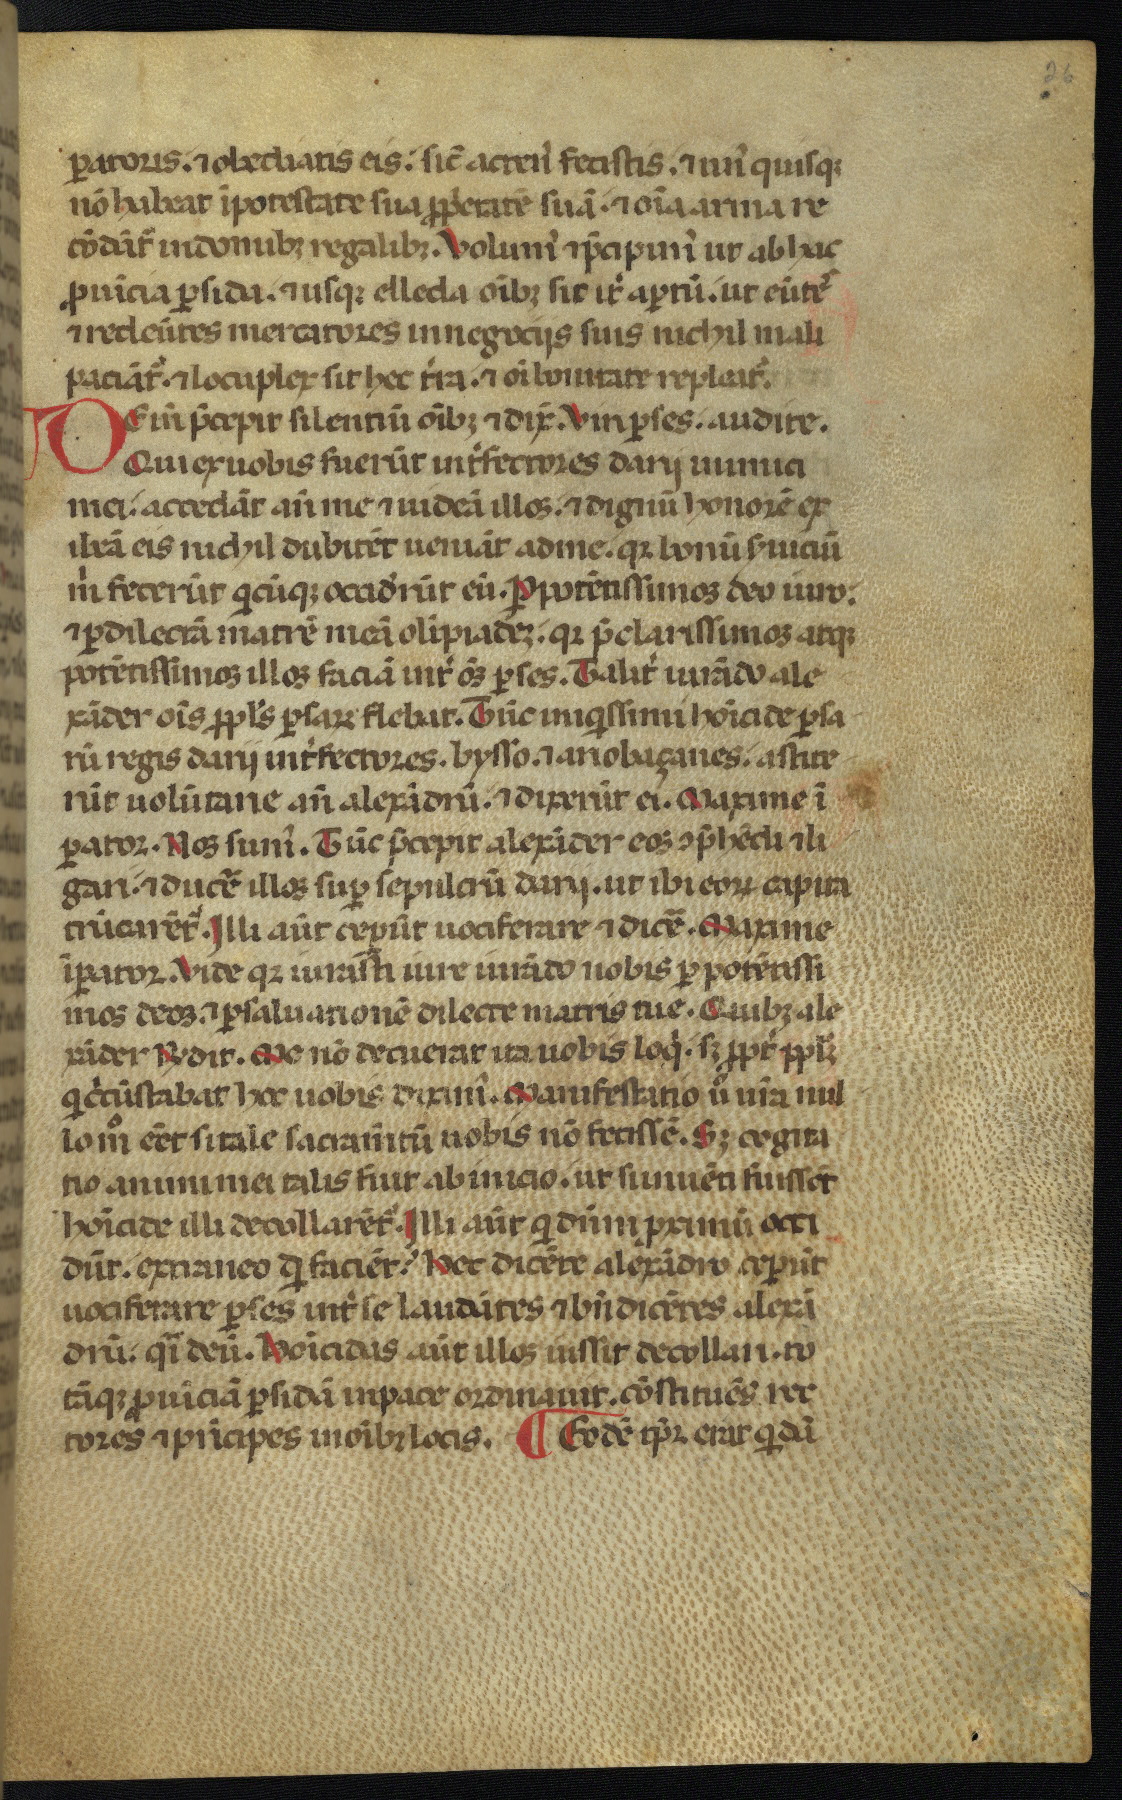 26
ꝑatoris. ⁊ obediatis eis. sic̄ actenꝰ fecistis. ⁊ un̄ quisqꝫ
nō habeat ī potestate sua ꝓp̄etatē suā. ⁊ oīa arma re
cōdāt᷑ in domibꝫ regalibꝫ. Volumꝰ ⁊ p̄cipimꝰ ut ab hac
ꝓuīcia ꝑsida. ⁊ usqꝫ ellada oībꝫ sit it᷑ aꝑtū. ut eūtes
⁊ redeūtes mercatores in negocijs suis nichil mali
paciāt᷑. ⁊ locuplex sit hec t᷑ra. ⁊ oī bonitate repleat᷑.
Deīn p̄cepit silentiū oībꝫ ⁊ dix̄. Viri ꝑses. audite.
Qui ex uobis fuerūt int᷑fectores darij inimici
mei. accedāt an̄ me ⁊ uideā illos. ⁊ dignū honorē ex
ibeā eis nichil dubitēt ueniāt ad me. qꝛ bonū ẜuiciū
m̄ fecerūt qͥcūqꝫ occid᷑rūt eū. Ꝑ potētissimos deos iuro.
⁊ ꝑ dilectā matrē meā olīpiadeꝫ. qꝛ p̄clarissimos atqꝫ
potētissimos illos faciā int᷑ oēs ꝑses. Talit᷑ iurādo ale
xāder oīs ꝓpl̄s ꝑsarꝝ flebat. Tūc iniqͥssimi hoīcide ꝑsa
rū regis darij int᷑fectores. bysso. ⁊ ariobaçanes. astite
rūt uolūtarie an̄ alexādrū. ⁊ dixerūt ei. Maxime ī
ꝑator. Nos sumꝰ. Tūc p̄cepit alexāder eos ꝯp̄hēdi ⁊ li
gari. ⁊ ducē illos suꝑ sepulcrū darij. ut ibi eorꝝ capita
trūcarēt᷑. Illi aūt ceꝑūt uociferare ⁊ dicē. Maxime
īꝑator. Vide qꝛ iurasti iure iurādo nobis ꝑ potētissi
mos deos. ⁊ ꝑ saluationē dilecte matris tue. Quibꝫ ale
xāder Rn̄dit. Me nō decuerat ita uobis loqͥ. sꝫ ꝓpt᷑ ꝓpl̄s
qͥ cͥcūstabat hec uobis diximꝰ. Manifestatio u᷑ ur̄a nul
lo mͦ eēt si tale sacram̄tū uobis nō fecissē. Sꝫ cogita
tio animi mei talis fuit ab inicio. ut si inuēti fuissēt
hoīcide illi decollarēt᷑. Illi aūt qͥ dūm ꝓximū occi
dūt. extraneo qͥd faciēt? Hec dicēte alexādro ceꝑūt
uociferare ꝑses int᷑ se laudātes ⁊ bn̄dicētes alexā
drū. qͣi deū. Hoīcidas aūt illos iussit decollari. to
tāqꝫ ꝓuīciā ꝑsidā in pace ordinauit. cōstituēs rec
tores ⁊ prīcipes in oībꝫ locis. ¶ Eodē tꝑe erat qͥdā